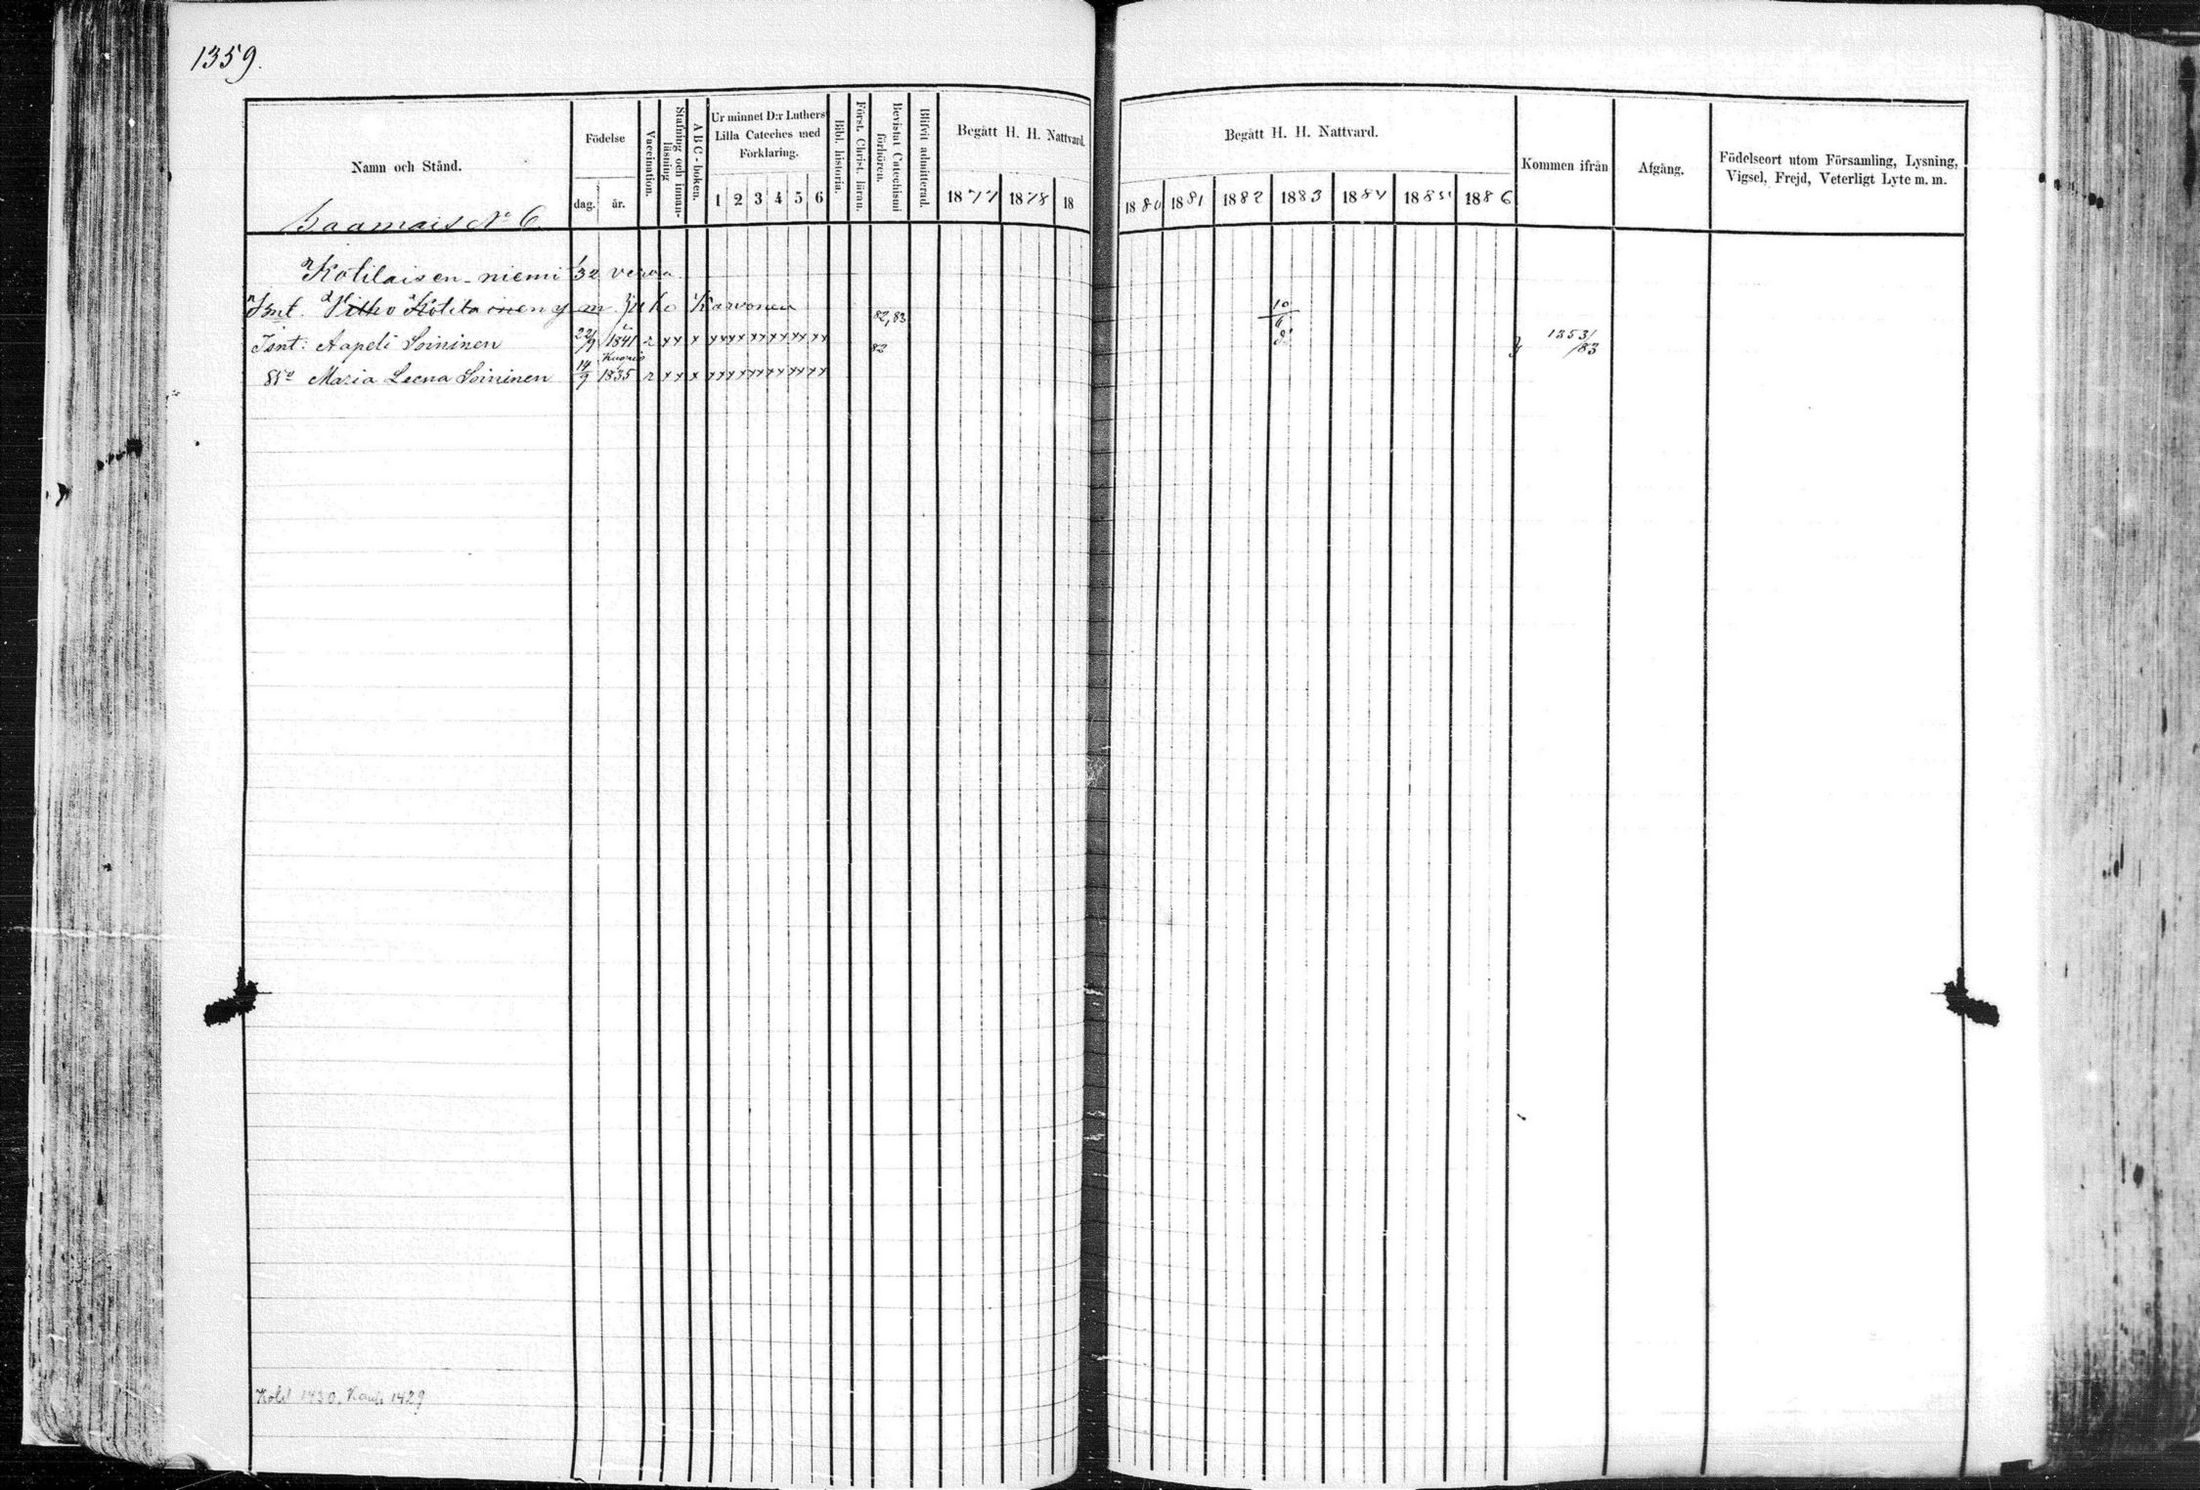 1359.
Namn och Stånd.
Födelse
dag.
år.
Vaccination.
Stafning och innan-
läsning
A B C - boken.
Ur minnet D:r Luthers
Lilla Cateches med
Förklaring.
1 2 3 4 5 6
Bibl. historia.
Först. Christ. läran.
Bevistat Catechismi
förhören.
Blifvit admitterad.
Begått H. H. Nattvard.
1877 1878 18
Begått H. H. Nattvard.
1880 1881 1882 1883 1884 1885 1886
Kommen ifrån
Afgång.
Födelseort utom Församling, Lysning,
Vigsel, Frejd, Veterligt Lyte m. m.
Saamais No 6
Kotilaisen-niemi 1/32 veroa
Isnt. Vilho Kotilainen y m Karvonen 82,83 10/6
Isnt: Aapeli Soininen 22/9 1841 r xx x xx xx xx xx xx xx 82 1253/83
Kuopio
Maria Leena Soininen 14/9 1835 r xx x xx xx xx xx xx xx
1430, 1429